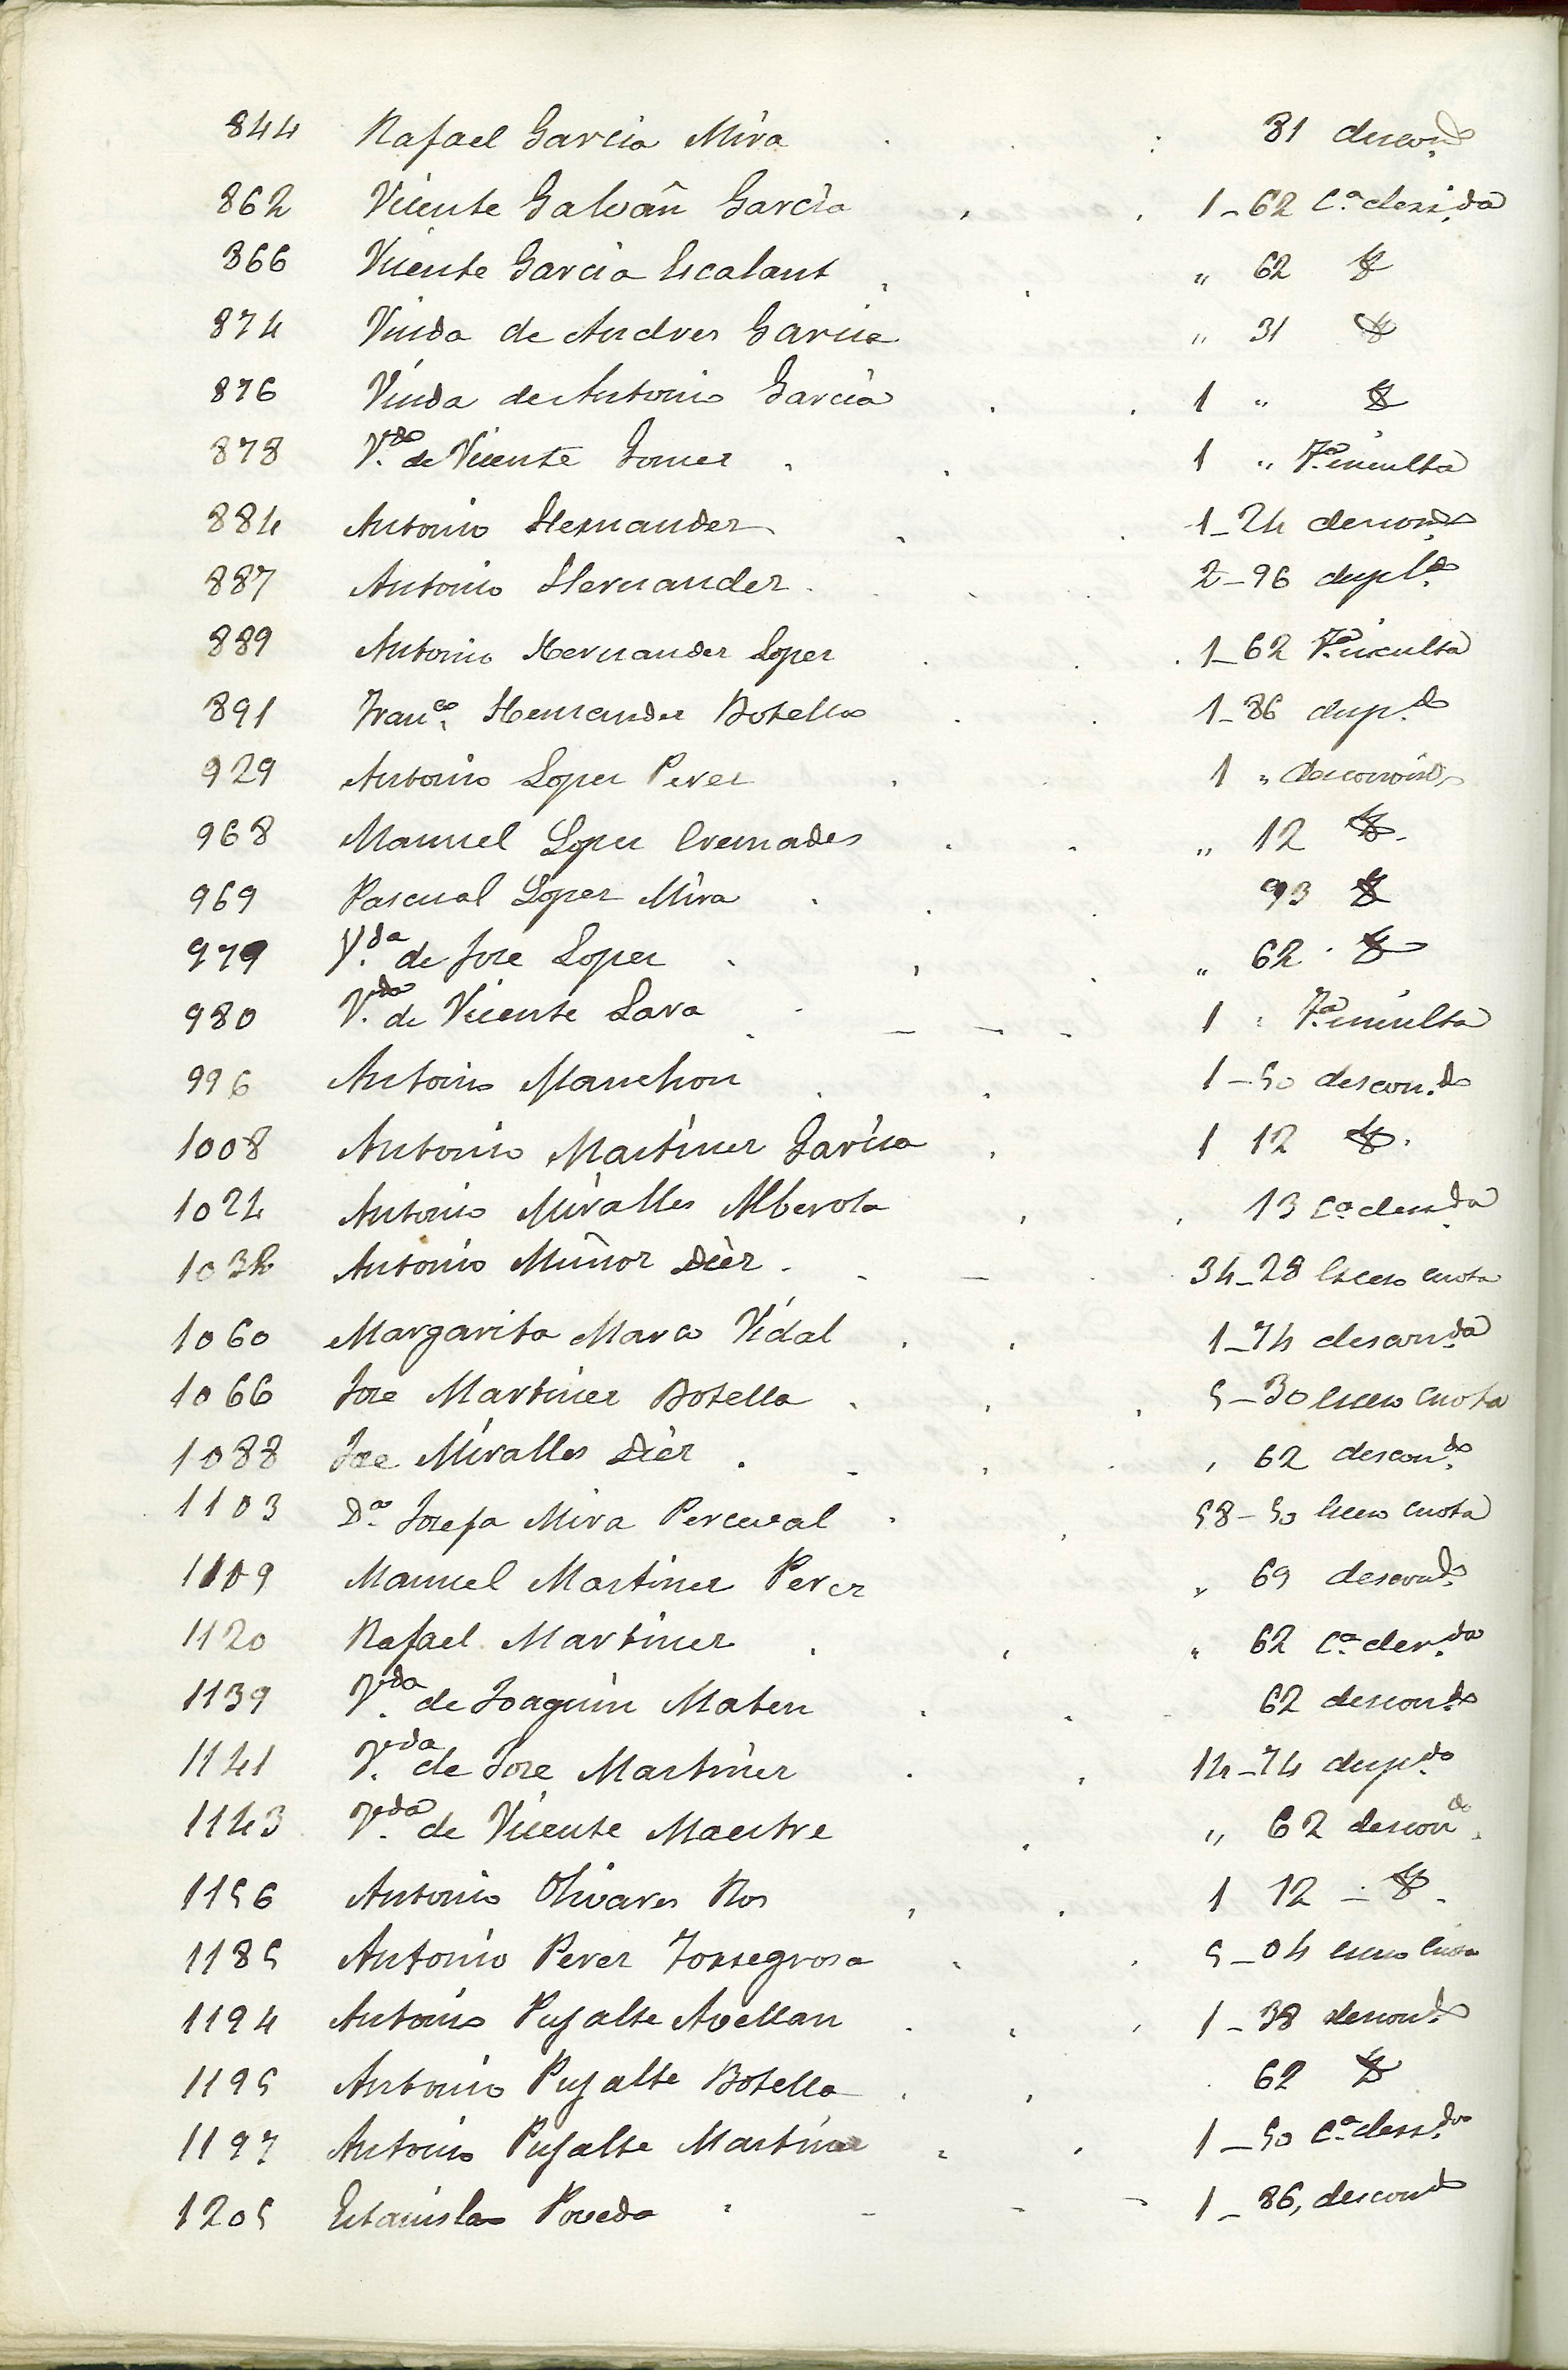 844 Rafael Garcia Mira 81 descon.do
862 Vicente Galvañ Garcia 1-62 C.a derri.da
866 Vicente Garcia Escalant " 62 id
874 Viuda de Andres Garcia " 31 id
876 Viuda de Antonio Garcia 1 " id
878 V.da de Vicente Gomez 1 " T.a inculta
884 Antonio Hernandez 1-24 descon.do
887 Antonio Hernandez 2-96 dupl.do
889 Antonio Hernandez Lopez 1-62 T.a inculta
891 Fran.co Hernandez Botella 1-86 dup.do
929 Antonio Lopez Perez 1 " desconoido
968 Manuel Lopez Cremades " 12 id
969 Pascual Lopez Mira 93 id
979 V.da de Jose Lopez " 62 id
980 V.da de Vicente Lara 1 " T.a inculta
996 Antonio Manchon 1-50 descon.do
1008 Antonio Martinez Garcia 1 12 id
1024 Antonio Miralles Alberola 13 C.a derr.da
Antonio Muñoz Diez 34-28 Exceso cuota
1060 Margarita Marco Vidal 1-74 descon.da
1066 Jose Martinez Botella 5-30 exceso cuota
1088 Jose Miralles Diez " 62 descon.do
1103 D.a Josefa Mira Perceval 58-50 exceso cuota
1109 Manuel Martinez Perez " 69 descon.do
1120 Rafael Martinez " 62 C.a der.da
1139 V.da de Joaquin Mateu 62 descon.do
1141 V.da de Jose Martinez 14-74 dup.do
1143 V.da de Vicente Maestre " 62 descon.do
1156 Antonio Olivares Ros 1 12 - id
1185 Antonio Perez Torregrosa 5-04 exceso cuota
1194 Antonio Pujalte Avellan 1-38 descon.do
1195 Antonio Pujalte Botella 62 id
1197 Antonio Pujalte Martinez 1-50 C.a derr.da
1205 Estanislao Poveda 1-86, descon.do